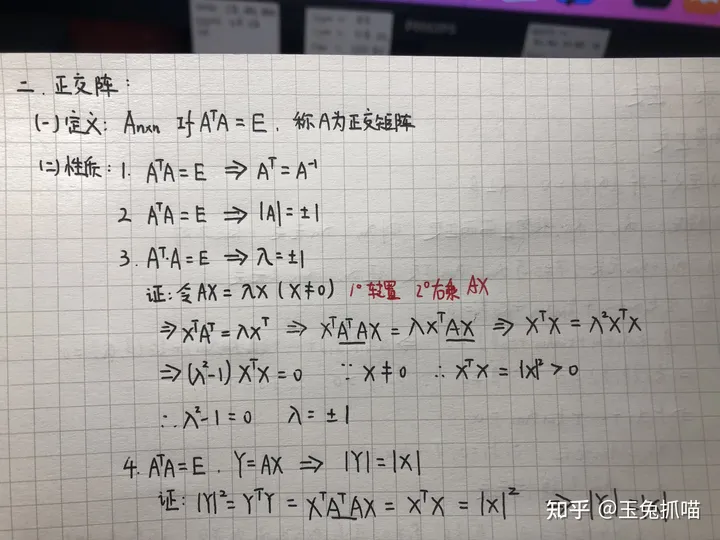 PHILIPS
二. 正交阵:
(一) 定义: Aₙₓₙ If AᵀA = E. 称A为正交矩阵
(二) 性质: 1. AᵀA = E ⇒ Aᵀ = A⁻¹
2 AᵀA = E ⇒ |A| = ±1
3. Aᵀ·A = E ⇒ λ = ±1
证: 令 AX = λX (X≠0) 1° 转置 2° 右乘 AX
⇒ XᵀAᵀ = λXᵀ ⇒ XᵀAᵀAX = λXᵀAX ⇒ XᵀX = λ²XᵀX
⇒ (λ²-1) XᵀX = 0 ∵ X≠0 ∴ XᵀX = |X|² > 0
∴ λ²-1 = 0 λ = ±1
4. AᵀA = E. Y = AX ⇒ |Y| = |X|
证: |Y|² = YᵀY = XᵀAᵀAX = XᵀX = |X|² ⇒ |Y|
知乎 @玉兔抓喵